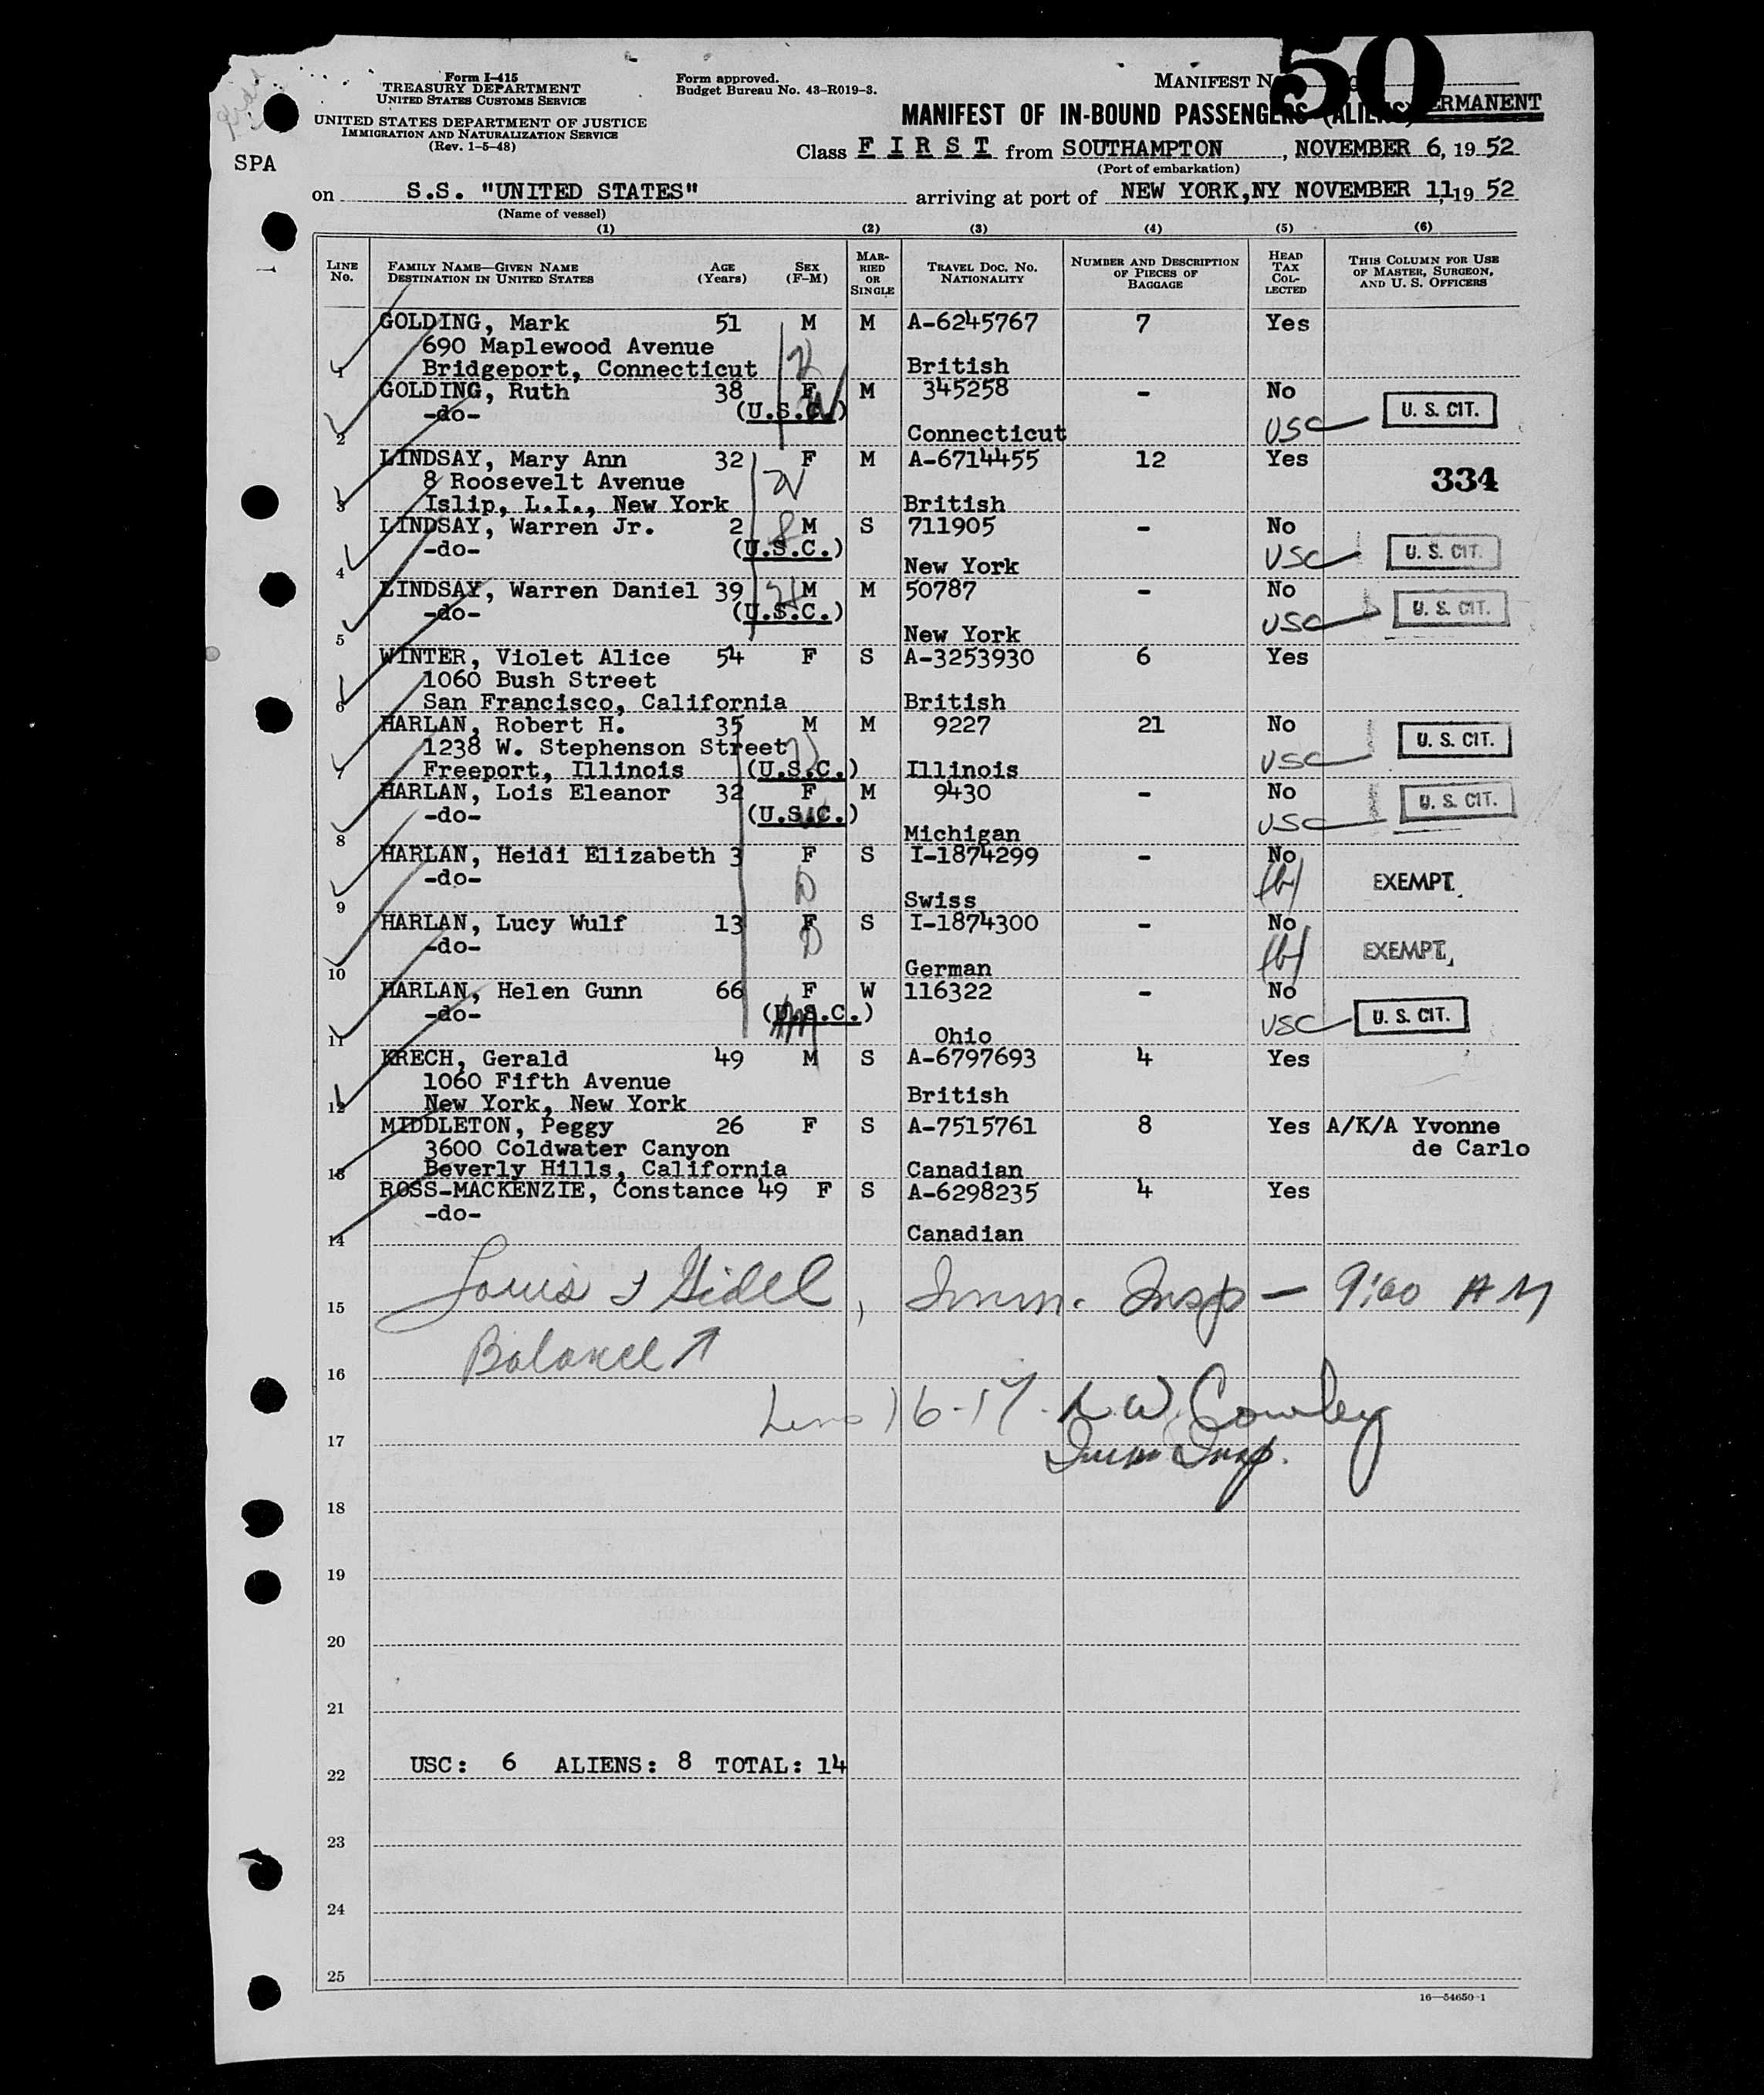 Form I-415
TREASURY DEPARTMENT
UNITED STATES CUSTOMS SERVICE
UNITED STATES DEPARTMENT OF JUSTICE
IMMIGRATION AND NATURALIZATION SERVICE
(Rev. 1-5-48)
Form approved.
Budget Bureau No. 43-R019-3.
50
PERMANENT
MANIFEST OF IN-BOUND PASSENGERS (ALIENS)
SPA
Class F I R S T from SOUTHAMPTON, NOVEMBER 6, 19 52
(Port of embarkation)
on S.S. "UNITED STATES" arriving at port of NEW YORK,NY NOVEMBER 11, 19 52
(Name of vessel)
(1) (2) (3) (4) (5) (6)
LINE No. FAMILY NAME—GIVEN NAME DESTINATION IN UNITED STATES AGE (Years) SEX (F-M) MARRIED OR SINGLE TRAVEL DOC. NO. NATIONALITY NUMBER AND DESCRIPTION OF PIECES OF BAGGAGE HEAD TAX COLLECTED THIS COLUMN FOR USE OF MASTER, SURGEON, AND U. S. OFFICERS
GOLDING, Mark 51 M M A-6245767 7 Yes
690 Maplewood Avenue
1 Bridgeport, Connecticut British
GOLDING, Ruth 38 F M 345258 - No
-do- (U.S.C.) USC U. S. CIT.
2 Connecticut
LINDSAY, Mary Ann 32 F M A-6714455 12 Yes
8 Roosevelt Avenue 334
3 Islip, L.I., New York British
LINDSAY, Warren Jr. 2 M S 711905 - No
-do- (U.S.C.) USC U. S. CIT.
4 New York
LINDSAY, Warren Daniel 39 M M 50787 - No
-do- (U.S.C.) USC U. S. CIT.
5 New York
WINTER, Violet Alice 54 F S A-3253930 6 Yes
1060 Bush Street
6 San Francisco, California British
HARLAN, Robert H. 35 M M 9227 21 No
1238 W. Stephenson Street USC U. S. CIT.
7 Freeport, Illinois (U.S.C.) Illinois
HARLAN, Lois Eleanor 32 F M 9430 - No
-do- (U.S.C.) USC U. S. CIT.
8 Michigan
HARLAN, Heidi Elizabeth 3 F S I-1874299 - No
-do- EXEMPT.
9 Swiss
HARLAN, Lucy Wulf 13 F S I-1874300 - No
-do- EXEMPT.
10 German
HARLAN, Helen Gunn 66 F W 116322 - No
-do- (U.S.C.) USC U. S. CIT.
11 Ohio
KRECH, Gerald 49 M S A-6797693 4 Yes
1060 Fifth Avenue
12 New York, New York British
MIDDLETON, Peggy 26 F S A-7515761 8 Yes A/K/A Yvonne
3600 Coldwater Canyon de Carlo
13 Beverly Hills, California Canadian
ROSS-MACKENZIE, Constance 49 F S A-6298235 4 Yes
-do-
14 Canadian
15 Louis J Gidel, Imm. Insp - 9:00 AM
16 Balance ↑
16-17. Cowley
17 Imm Insp.
18
19
20
21
22 USC: 6 ALIENS: 8 TOTAL: 14
23
24
25
16—54650-1